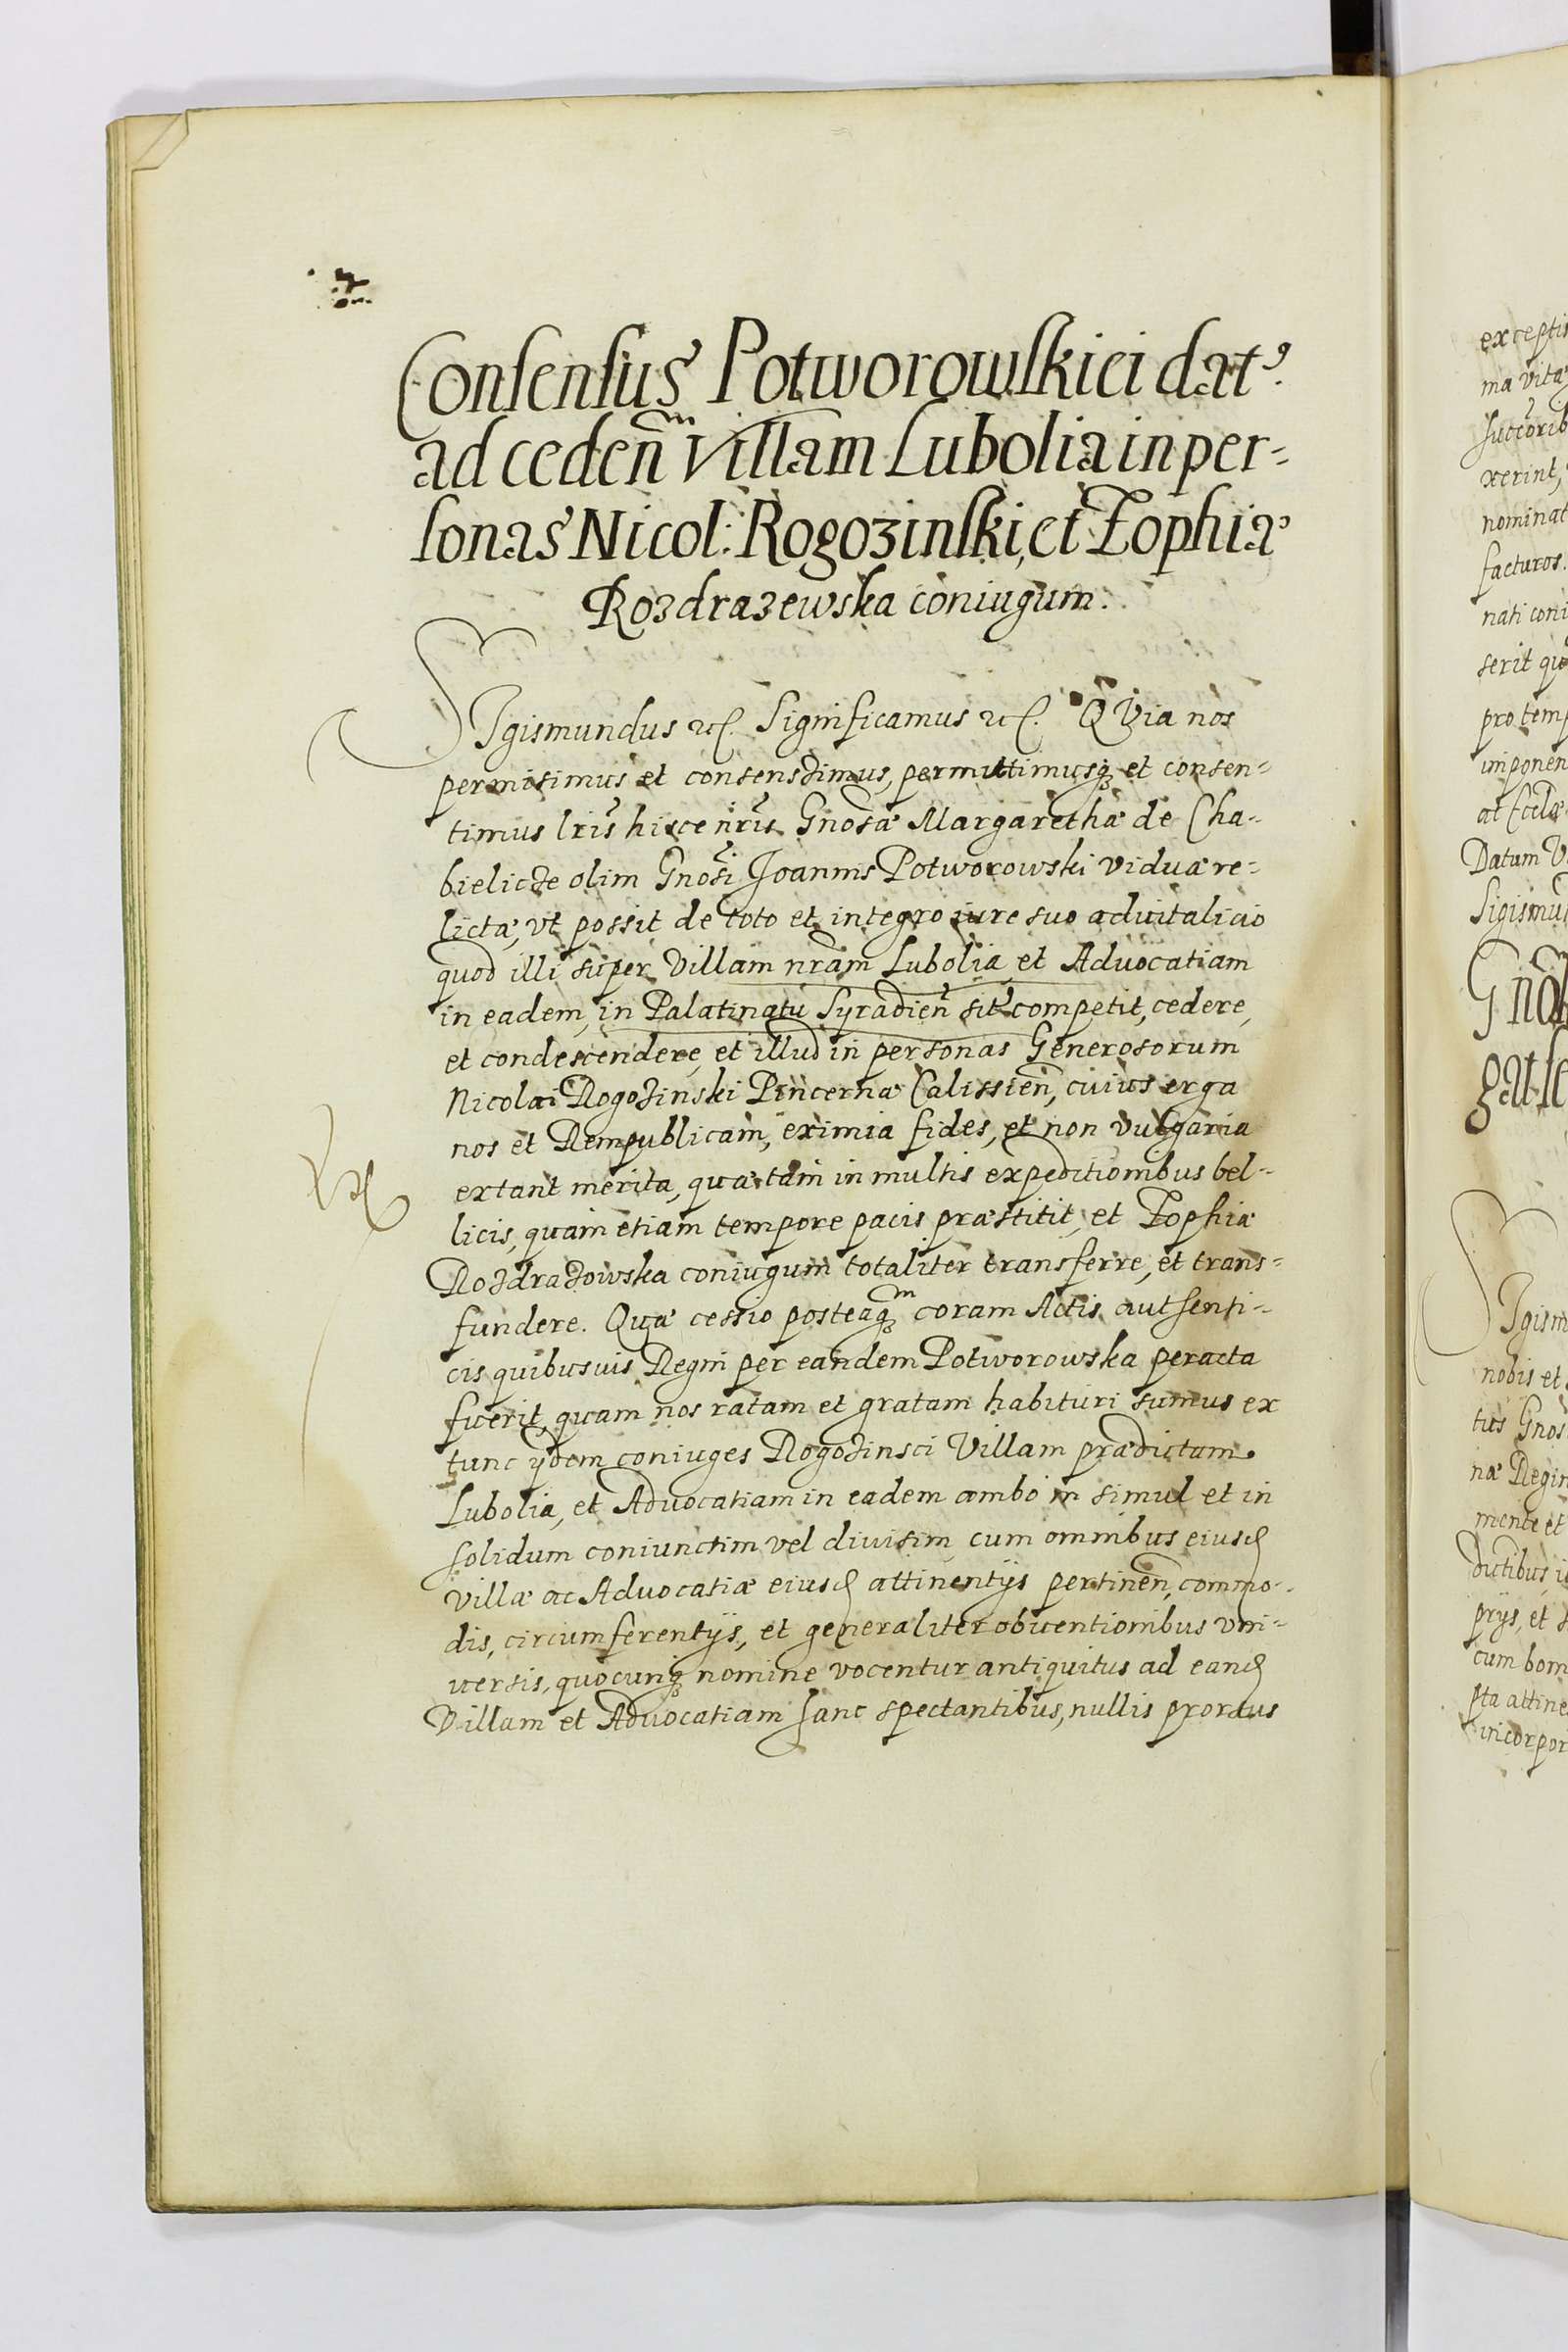 Consensus Potworowskiei dat9.
ad cedenm̃ Villam Lubolia in per-
sonas Nicol: Rogozinski, et Zophia
Rozdrazewska coniugum.
SIgismundus etc. Significamus etc. QVia nos
permisimus et consensimus, permittimusq et consen-
timus lris hisce nris Gnosæ Margarethæ de Cha-
bielicze olim Gnosi Joannis Potworowski viduæ re-
lictæ, vt possit de toto et integro iure suo aduitalicio
quod illi super Villam nram Lubolia et Aduocatiam
in eadem, in Palatinatu Syradien sit competit, cedere,
et condescendere, et illud in personas Generosorum
Nicolai Rogozinski Pincernæ Calissien, cuius erga
nos et Rempublicam, eximia fides, et non vulgaria
extant merita, quæ tam in multis expeditionibus bel-
licis, quam etiam tempore pacis præstitit, et Zophiæ
Rozdrazowska coniugum totaliter transferre, et trans-
fundere. Quæ cessio posteaqm coram Actis authenti-
cis quibusuis Regni per eandem Potworowska peracta
fuerit, quam nos ratam et gratam habituri sumus ex
tunc ijdem coniuges Rogozinsci Villam prædictam
Lubolia, et Aduocatiam in eadem ambo in simul et in
solidum coniunctim vel diuisim cum omnibus eiusd
villæ ac Aduocatiæ eiusd attinentijs pertinen, commo-
dis, circumferentijs, et generaliter obuentionibus vni-
uersis, quocunq nomine vocentur antiquitus ad eand
Villam et Aduocatiam hanc spectantibus, nullis prorsus
exceptis
ma vitæ
succorib
xerint,
nominat
facturos.
nati coni
serit qu
pro temp
imponen
at Eccl
Datum V
Sigismu
Gno
gat se
SIgism
nobis et
tus Gnos
næ Regin
mente et
dictibus, i
prijs, et s
cum bom
pta attine
incorpor